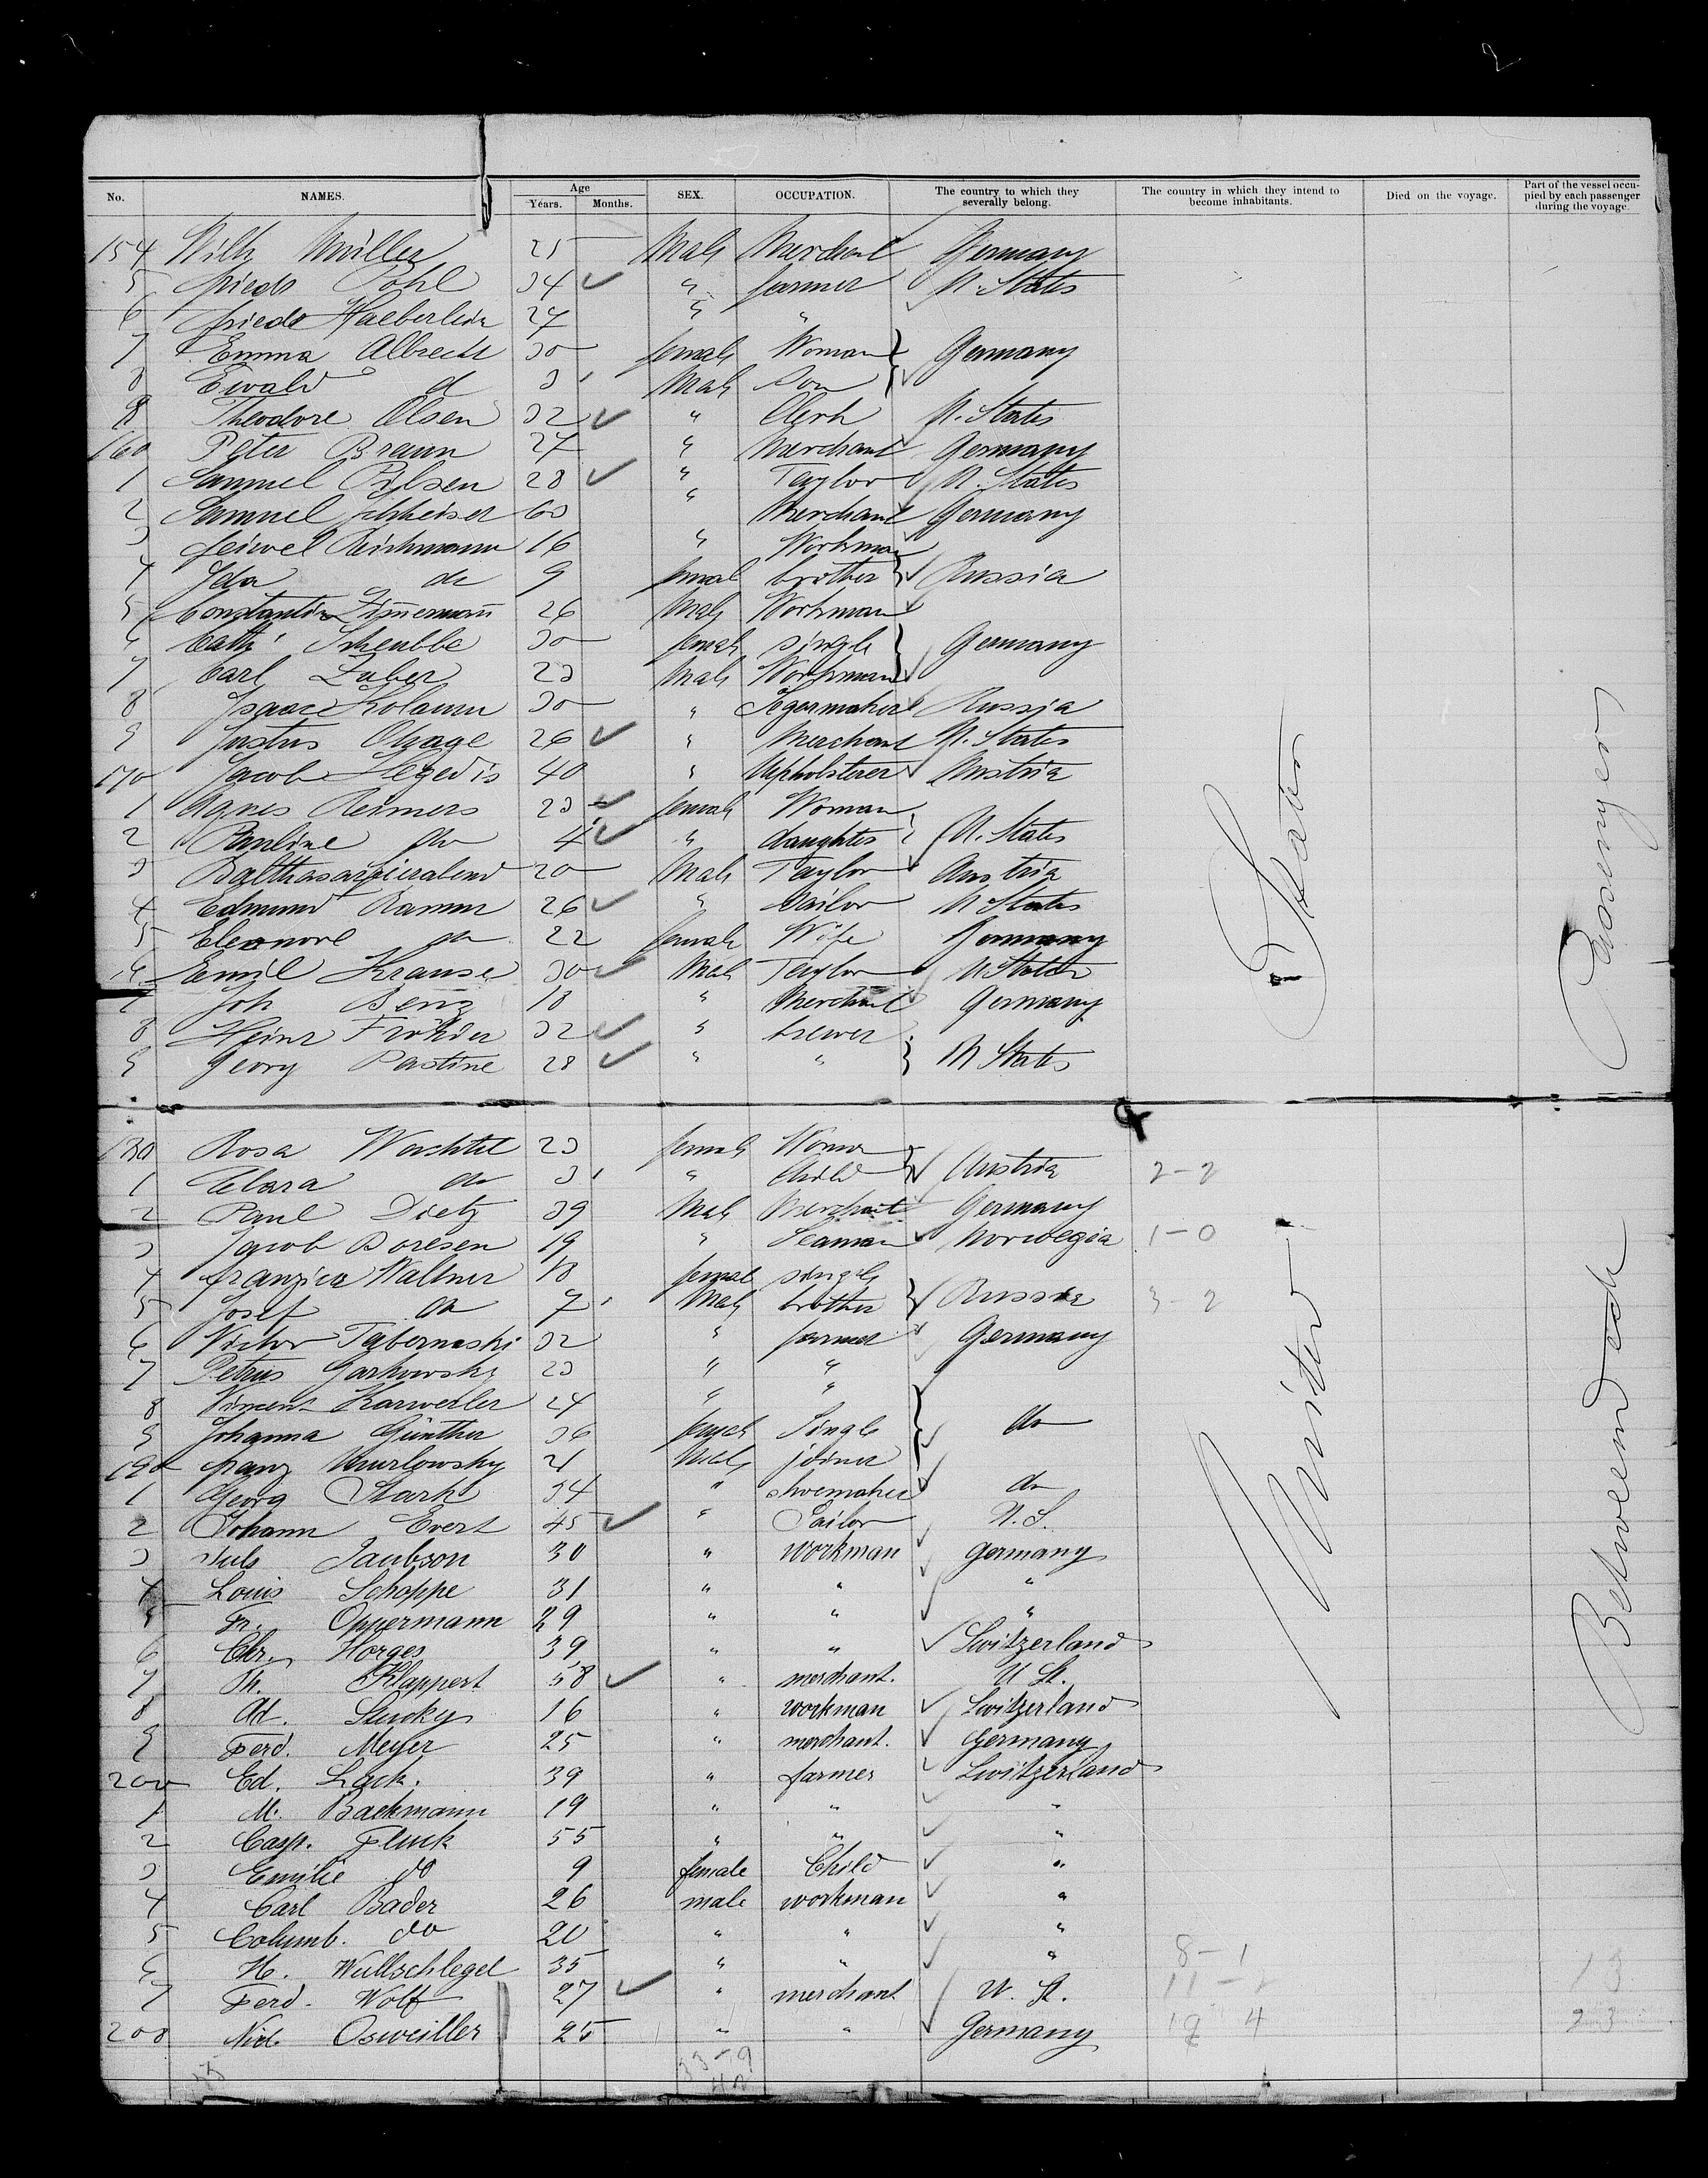 2
No. NAMES. Age Years. Months. SEX. OCCUPATION. The country to which they severally belong. The country in which they intend to become inhabitants. Died on the voyage. Part of the vessel occupied by each passenger during the voyage.
154 Wilh Müller 25 Male Merchant Germany
5 Friedr Pohl 34 " farmer U. States
6 Friedr Haeberlein 27 " "
7 Emma Albrecht 30 female Woman Germany
8 Ewald d 3 Male Son
9 Theodore Olsen 32 " Clerk U. States
160 Peter Braun 27 " Merchant Germany
1 Samuel 28 " Taylor U. States
2 Samuel 60 " Merchant Germany
3 Reichmann 16 " Workman
4 Ida do 9 female brother Russia
5 Constantin Zimmermann 26 Male Workman
6 Cath. Scheubbe 30 female single Germany
7 Carl Zuber 23 Male Workman
8 Isaac Kolaum 30 " Segarmaker Russia
9 Justus Ohage 26 " Merchant U. States
170 Jacob Hegedis 40 " Upholsterer Austria
1 Agnes Reimers 23 female Woman
2 Pauline do 4 " daughter U. States
3 Balthasar 20 Male Taylor Austria
4 Edmund Ramm 26 " Sailor U States
5 Eleonore do 22 female Wife Germany
6 Emil Krause 30 Male Taylor U States
7 Joh Benz 18 " Merchant Germany
8 Heinr 32 " brewer
9 Georg Pastine 28 " " U States
180 Rosa Wachtel 23 female Woman
1 Clara do 3 " Child Austria 2-2
2 Paul Dietz 39 Male Merchant Germany
3 Jacob Boresen 19 " Seaman Norwegia 1-0
4 Franzica Wallner 18 female single
5 Josef do 7 Male brother Russia 3-2
6 Victor Tabernaski 32 " farmer Germany
7 Petrus Garkowski 23 " "
8 Vincent Karweiler 24 " "
9 Johanna Günther 36 female Single do
190 Franz Murlowsky 21 Male joiner
1 Georg Stark 34 " shoemaker do
2 Johann Evert 45 " Sailor U.S.
3 Juls Jaubson 30 " workman Germany
4 Louis Schoppe 31 " " "
5 Fr. Oppermann 29 " " "
6 Chr. Horges 39 " " Switzerland
7 Th. Klappert 58 " merchant. U St.
8 Ad. Stucky 16 " workman Switzerland
9 Ferd. Meyer 25 " merchant. Germany
200 Ed. Lack. 39 " farmer Switzerland
1 M. Backmann 19 " " "
2 Casp. Fluck 55 " " "
3 Emilie do 9 female Child "
4 Carl Bader 26 male workman "
5 Columb. do 20 " " "
6 H. Wullschlegel 35 " " " 8-1
7 Ferd. Wolf 27 " merchant U. St. 11-2 13
208 Nid. Osweiller 25 " " Germany 12 4 23
33-9
42
United States
Betweendeck Passenger